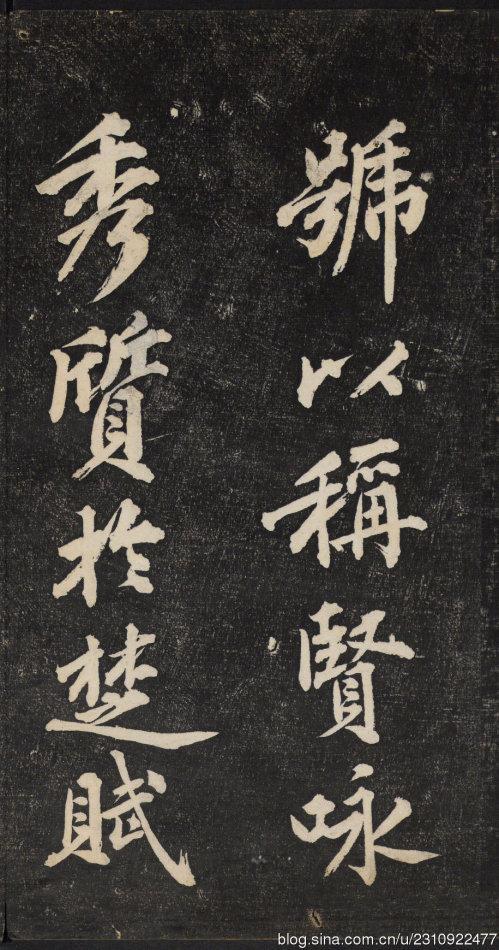 號以稱賢咏
秀質於楚賦
blog.sina.com.cn/u/2310922477